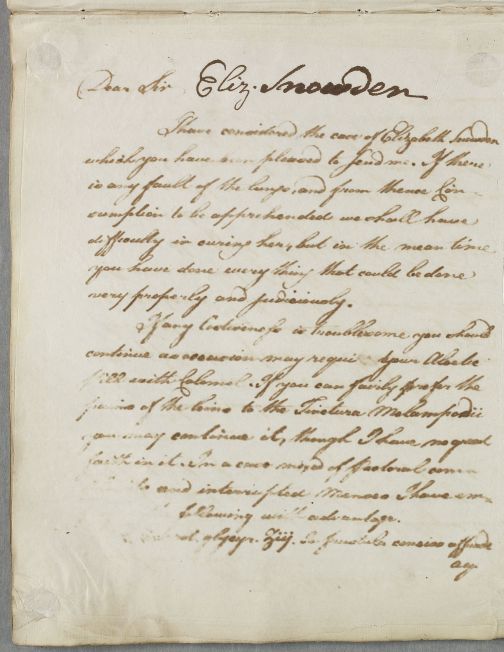 Dear Sir Eliz. Snowden
I have considered the case of Elizabeth Snowden
which you have been pleased to send me. If there
is any fault of the lungs, and from thence Con-
sumption to be apprehended we shall have
difficulty in curing her, but in the mean time
you have done every thing that could be done
very properly and judiciously.
If any Costiveness is troublesome you should
continue as occasion may require your Aloetic
Pill with Calomel. If you can fairly the
of the to the Tinctura Melampodii
you may continue it, though I have no great
faith in it. In a case mixed of pectoral com-
and interrupted Menses I have em-
following with advantage.
glycyr. ℥iij. concisa affunde
aq